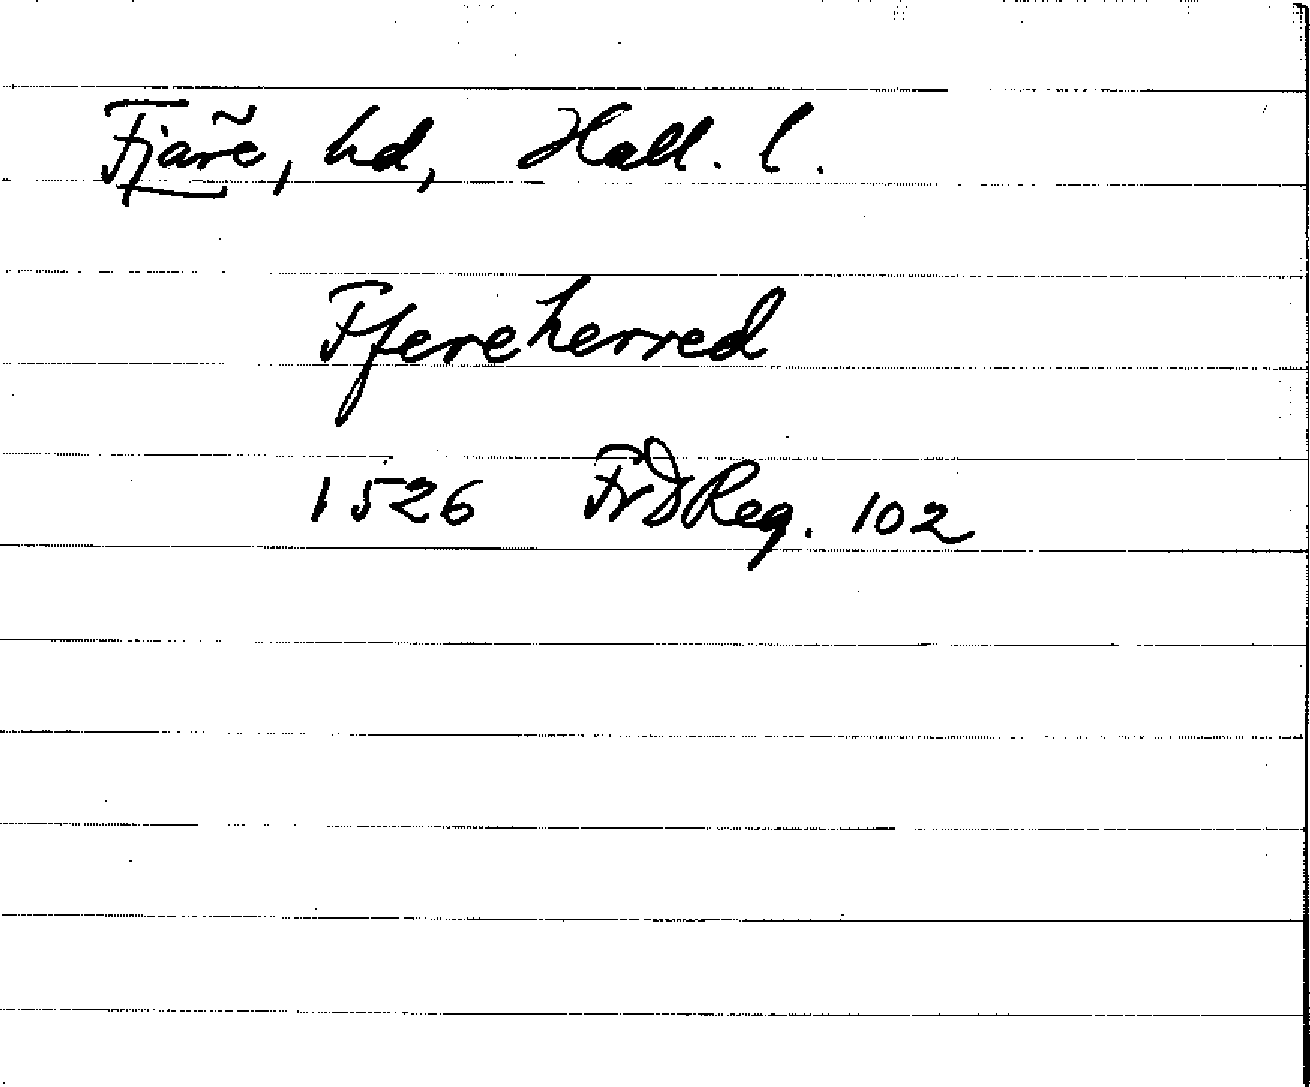 Fjäre, hd, Hall. l.
Ffereherred
1526 FrDReg. 102